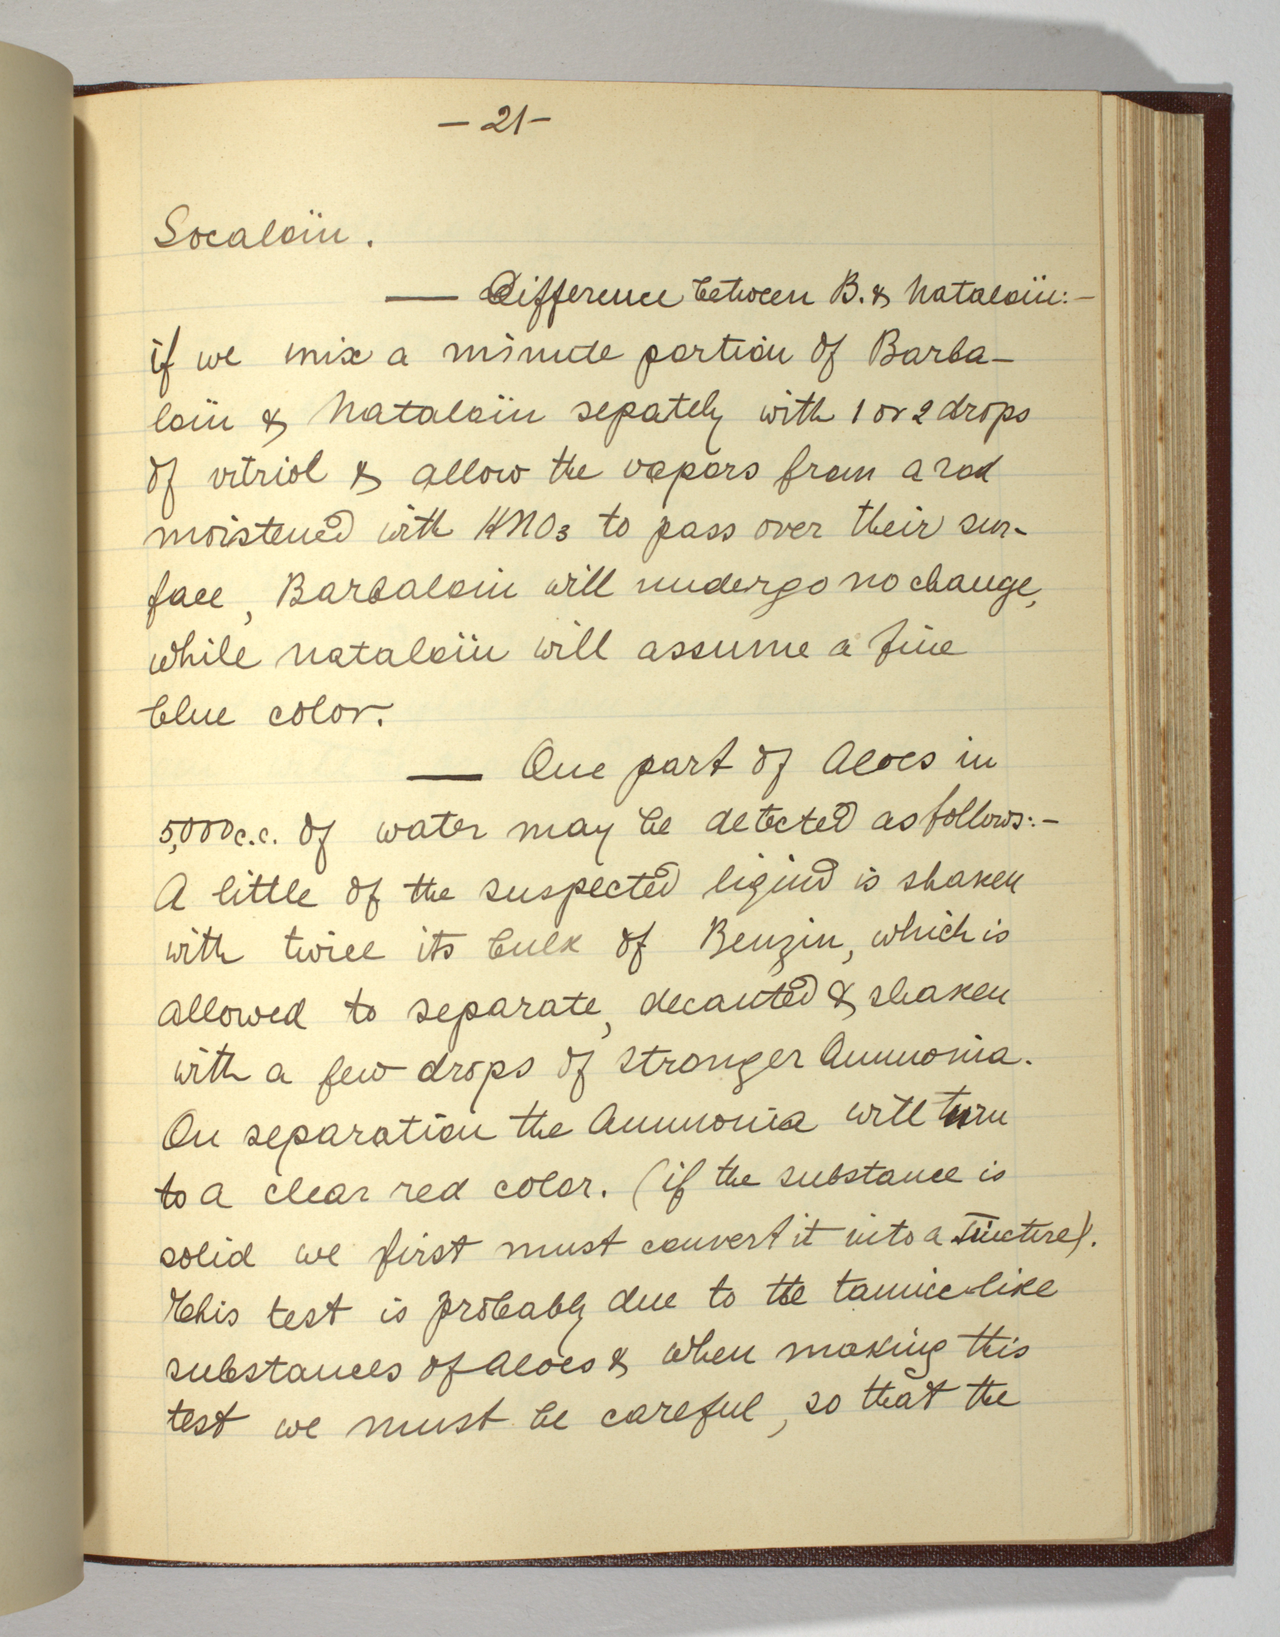 -21-
Socaloïn.
— Difference between B. & Nataloïn:-
if we mix a minute portion of Barba-
loïn & Nataloïn sepately with 1 or 2 drops
of vitriol & allow the vapors from a rod
moistened with HNO3 to pass over their sur-
face, Barbaloin will undergo no change,
while nataloïn will assume a fine
blue color.
— One part of Aloes in
5,000c.c. of water may be detected as follows:-
A little of the suspected liqiud is shaken
with twice its bulk of Benzin, which is
allowed to separate, decanted & shaken
with a few drops of stronger Ammonia.
On separation the Ammonia will turn
to a clear red color. (if the substance is
solid we first must convert it into a Tincture).
This test is probably due to the tannic-like
substances of Aloes & when making this
test we must be careful, so that the